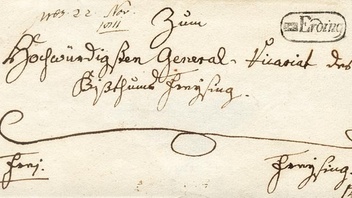 22. Nov.
1811
Zum
Erding
Hochwürdigsten General-Vicariat des
Bisthums Freysing.
frei.
Freysing.